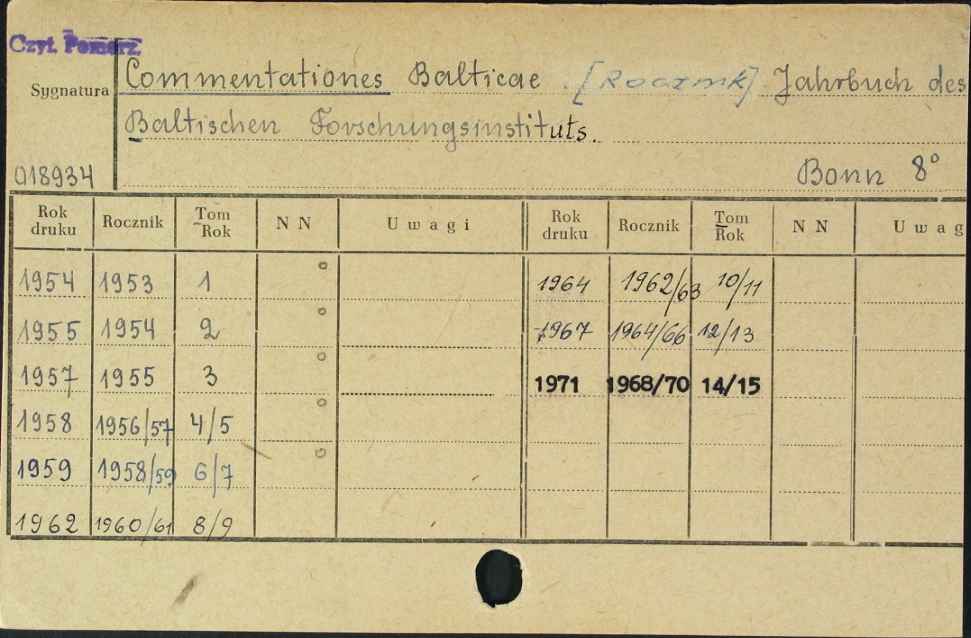 Czyt. Pomorz.
Sygnatura
Commentationes Balticae [Rocznik] Jahrbuch des
Baltischen Forschungsinstituts.
018934
Bonn 8°
Rok druku Rocznik Tom Rok N N Uwagi Rok druku Rocznik Tom Rok N N Uwag
1954 1953 1 1964 1962/63 10/11
1955 1954 2 1967 1964/66 12/13
1957 1955 3 1971 1968/70 14/15
1958 1956/57 4/5
1959 1958/59 6/7
1962 1960/61 8/9